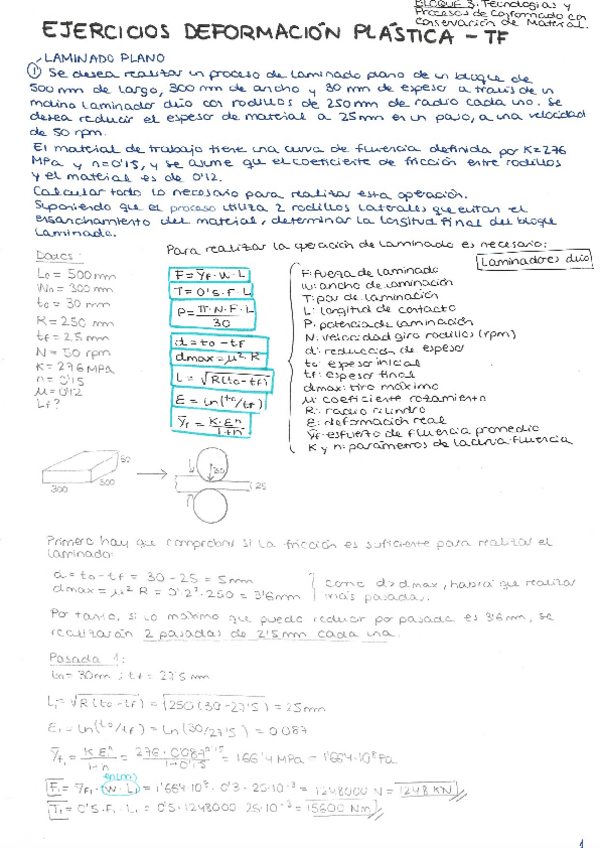 BLOQUE 3: Tecnologías y
Procesos de Conformado con
Conservación de Material.
EJERCICIOS DEFORMACIÓN PLÁSTICA - TF
LAMINADO PLANO
① Se desea realizar un proceso de laminado plano de un bloque de
500 mm de largo, 300 mm de ancho y 30 mm de espesor a través de un
molino laminador dúo con rodillos de 250 mm de radio cada uno. Se
desea reducir el espesor de material a 25 mm en un paso, a una velocidad
de 50 rpm.
El material de trabajo tiene una curva de fluencia definida por K=276
MPa y n=0'15, y se asume que el coeficiente de fricción entre rodillos
y el material es de 0'12.
Calcular todo lo necesario para realizar esta operación.
Suponiendo que el proceso utiliza 2 rodillos laterales que evitan el
ensanchamiento del material, determinar la longitud final del bloque
laminado.
Datos:
L₀ = 500 mm
W₀ = 300 mm
t₀ = 30 mm
R = 250 mm
tf = 25 mm
N = 50 rpm
K = 276 MPa
n = 0'15
μ = 0'12
Lf?
Para realizar la operación de laminado es necesario:
Laminadores dúo
F = Ȳf · W · L
T = 0'5 · F · L
P = π·N·F·L / 30
d = t₀ - tf
dmax = μ² · R
L = √R(t₀ - tf)
E = ln(t₀/tf)
Ȳf = K·Eⁿ / 1+n
F: fuerza de laminado
W: ancho de laminación
T: par de laminación
L: longitud de contacto
P: potencia de laminación
N: velocidad giro rodillos (rpm)
d: reducción de espesor
t₀: espesor inicial
tf: espesor final
dmax: tiro máximo
μ: coeficiente rozamiento
R: radio cilindro
E: deformación real
Ȳf: esfuerzo de fluencia promedio
K y n: parámetros de la curva fluencia
300
500
25
Primero hay que comprobar si la fricción es suficiente para realizar el
laminado:
d = t₀ - tf = 30 - 25 = 5 mm
dmax = μ² R = 0'12² · 250 = 3'6 mm
como d > dmax, habrá que realizar
más pasadas.
Por tanto, si lo máximo que puedo reducir por pasada es 3'6 mm, se
realizarán 2 pasadas de 2'5 mm cada una.
Pasada 1:
t₀ = 30 mm ; tf = 27'5 mm
L₁ = √R(t₀ - tf) = √250(30 - 27'5) = 25 mm
E₁ = ln(t₀/tf) = ln(30/27'5) = 0'087
Ȳf₁ = K Eⁿ / 1+n = 276 · 0'087^0'15 / 1+0'15 = 166'4 MPa = 1'664·10⁸ Pa
en (m)
F₁ = Ȳf₁ · W · L₁ = 1'664·10⁸ · 0'3 · 25·10⁻³ = 1248000 N = 1248 KN
T₁ = 0'5 · F₁ · L₁ = 0'5 · 1248000 · 25·10⁻³ = 15600 Nm
1